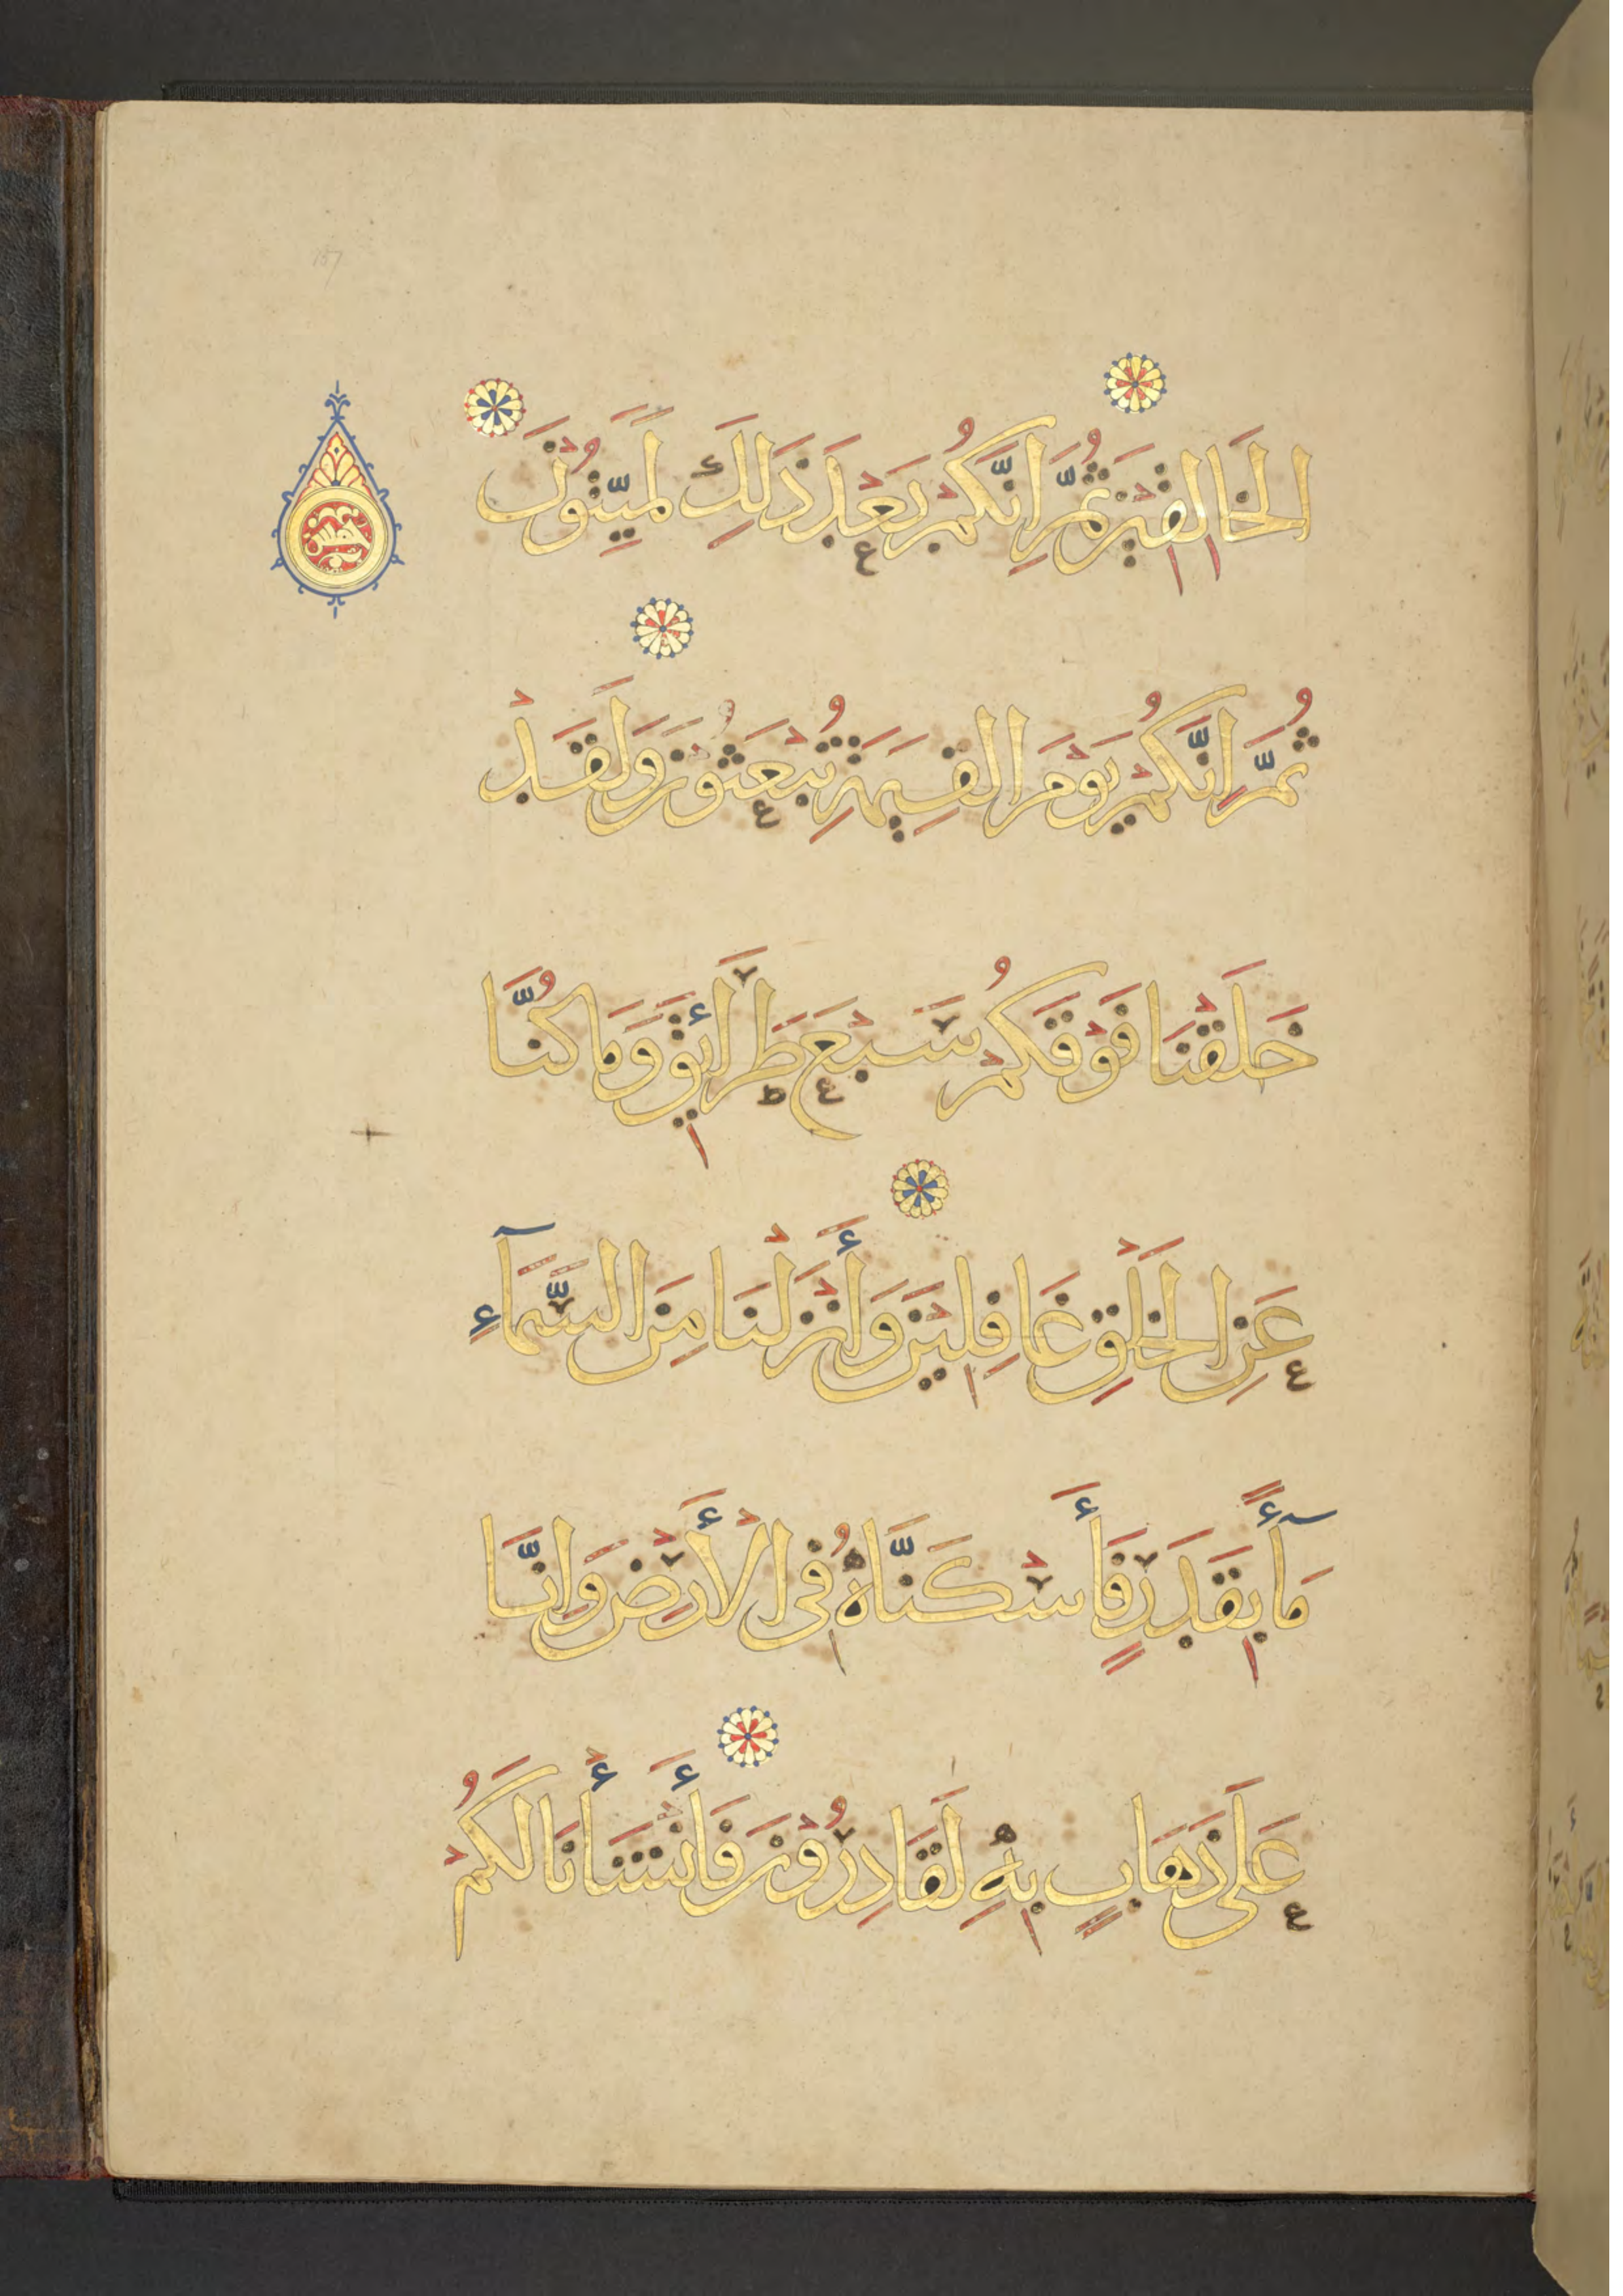 الْخَالِقِينَ ثُمَّ إِنَّكُمْ بَعْدَ ذَلِكَ لَمَيِّتُونَ
خمس
ثُمَّ إِنَّكُمْ يَوْمَ الْقِيَمَةِ تُبْعَثُونَ وَلَقَدْ
خَلَقْنَا فَوْقَكُمْ سَبْعَ طَرَائِقَ وَمَا كُنَّا
عَنِ الْخَلْقِ غَافِلِينَ وَأَنْزَلْنَا مِنَ السَّمَآءِ
مَآءً بِقَدَرٍ فَأَسْكَنَّاهُ فِى الْأَرْضِ وَإِنَّا
عَلَى ذَهَابٍ بِهِ لَقَادِرُونَ فَأَنْشَأْنَا لَكُمْ